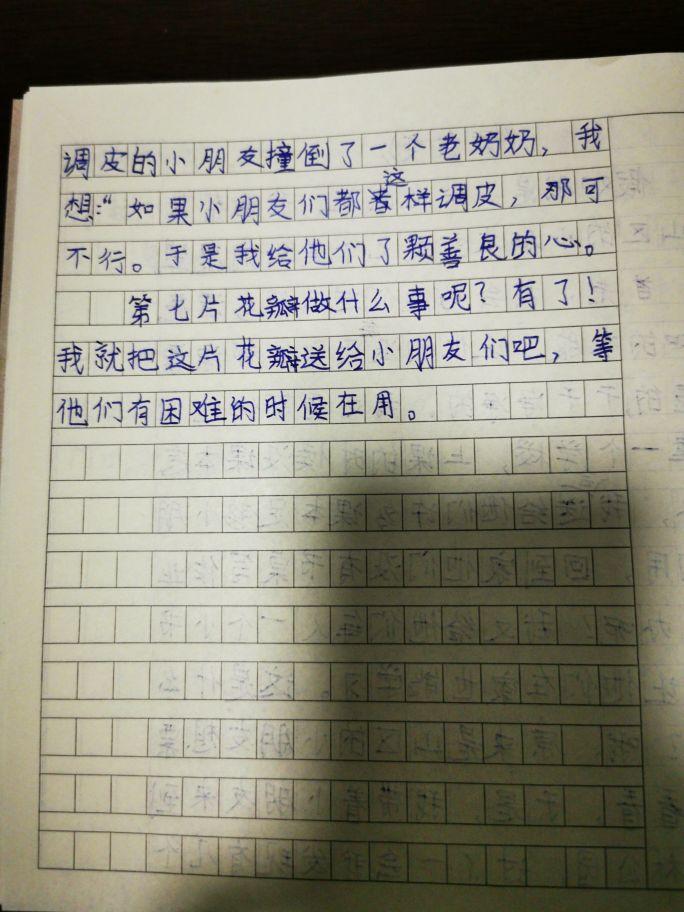 调皮的小朋友撞倒了一个老奶奶，我
想：“如果小朋友们都这样调皮，那可
不行。于是我给他们了颗善良的心。
第七片花瓣做什么事呢？有了！
我就把这片花瓣送给小朋友们吧，等
他们有困难的时候在用。